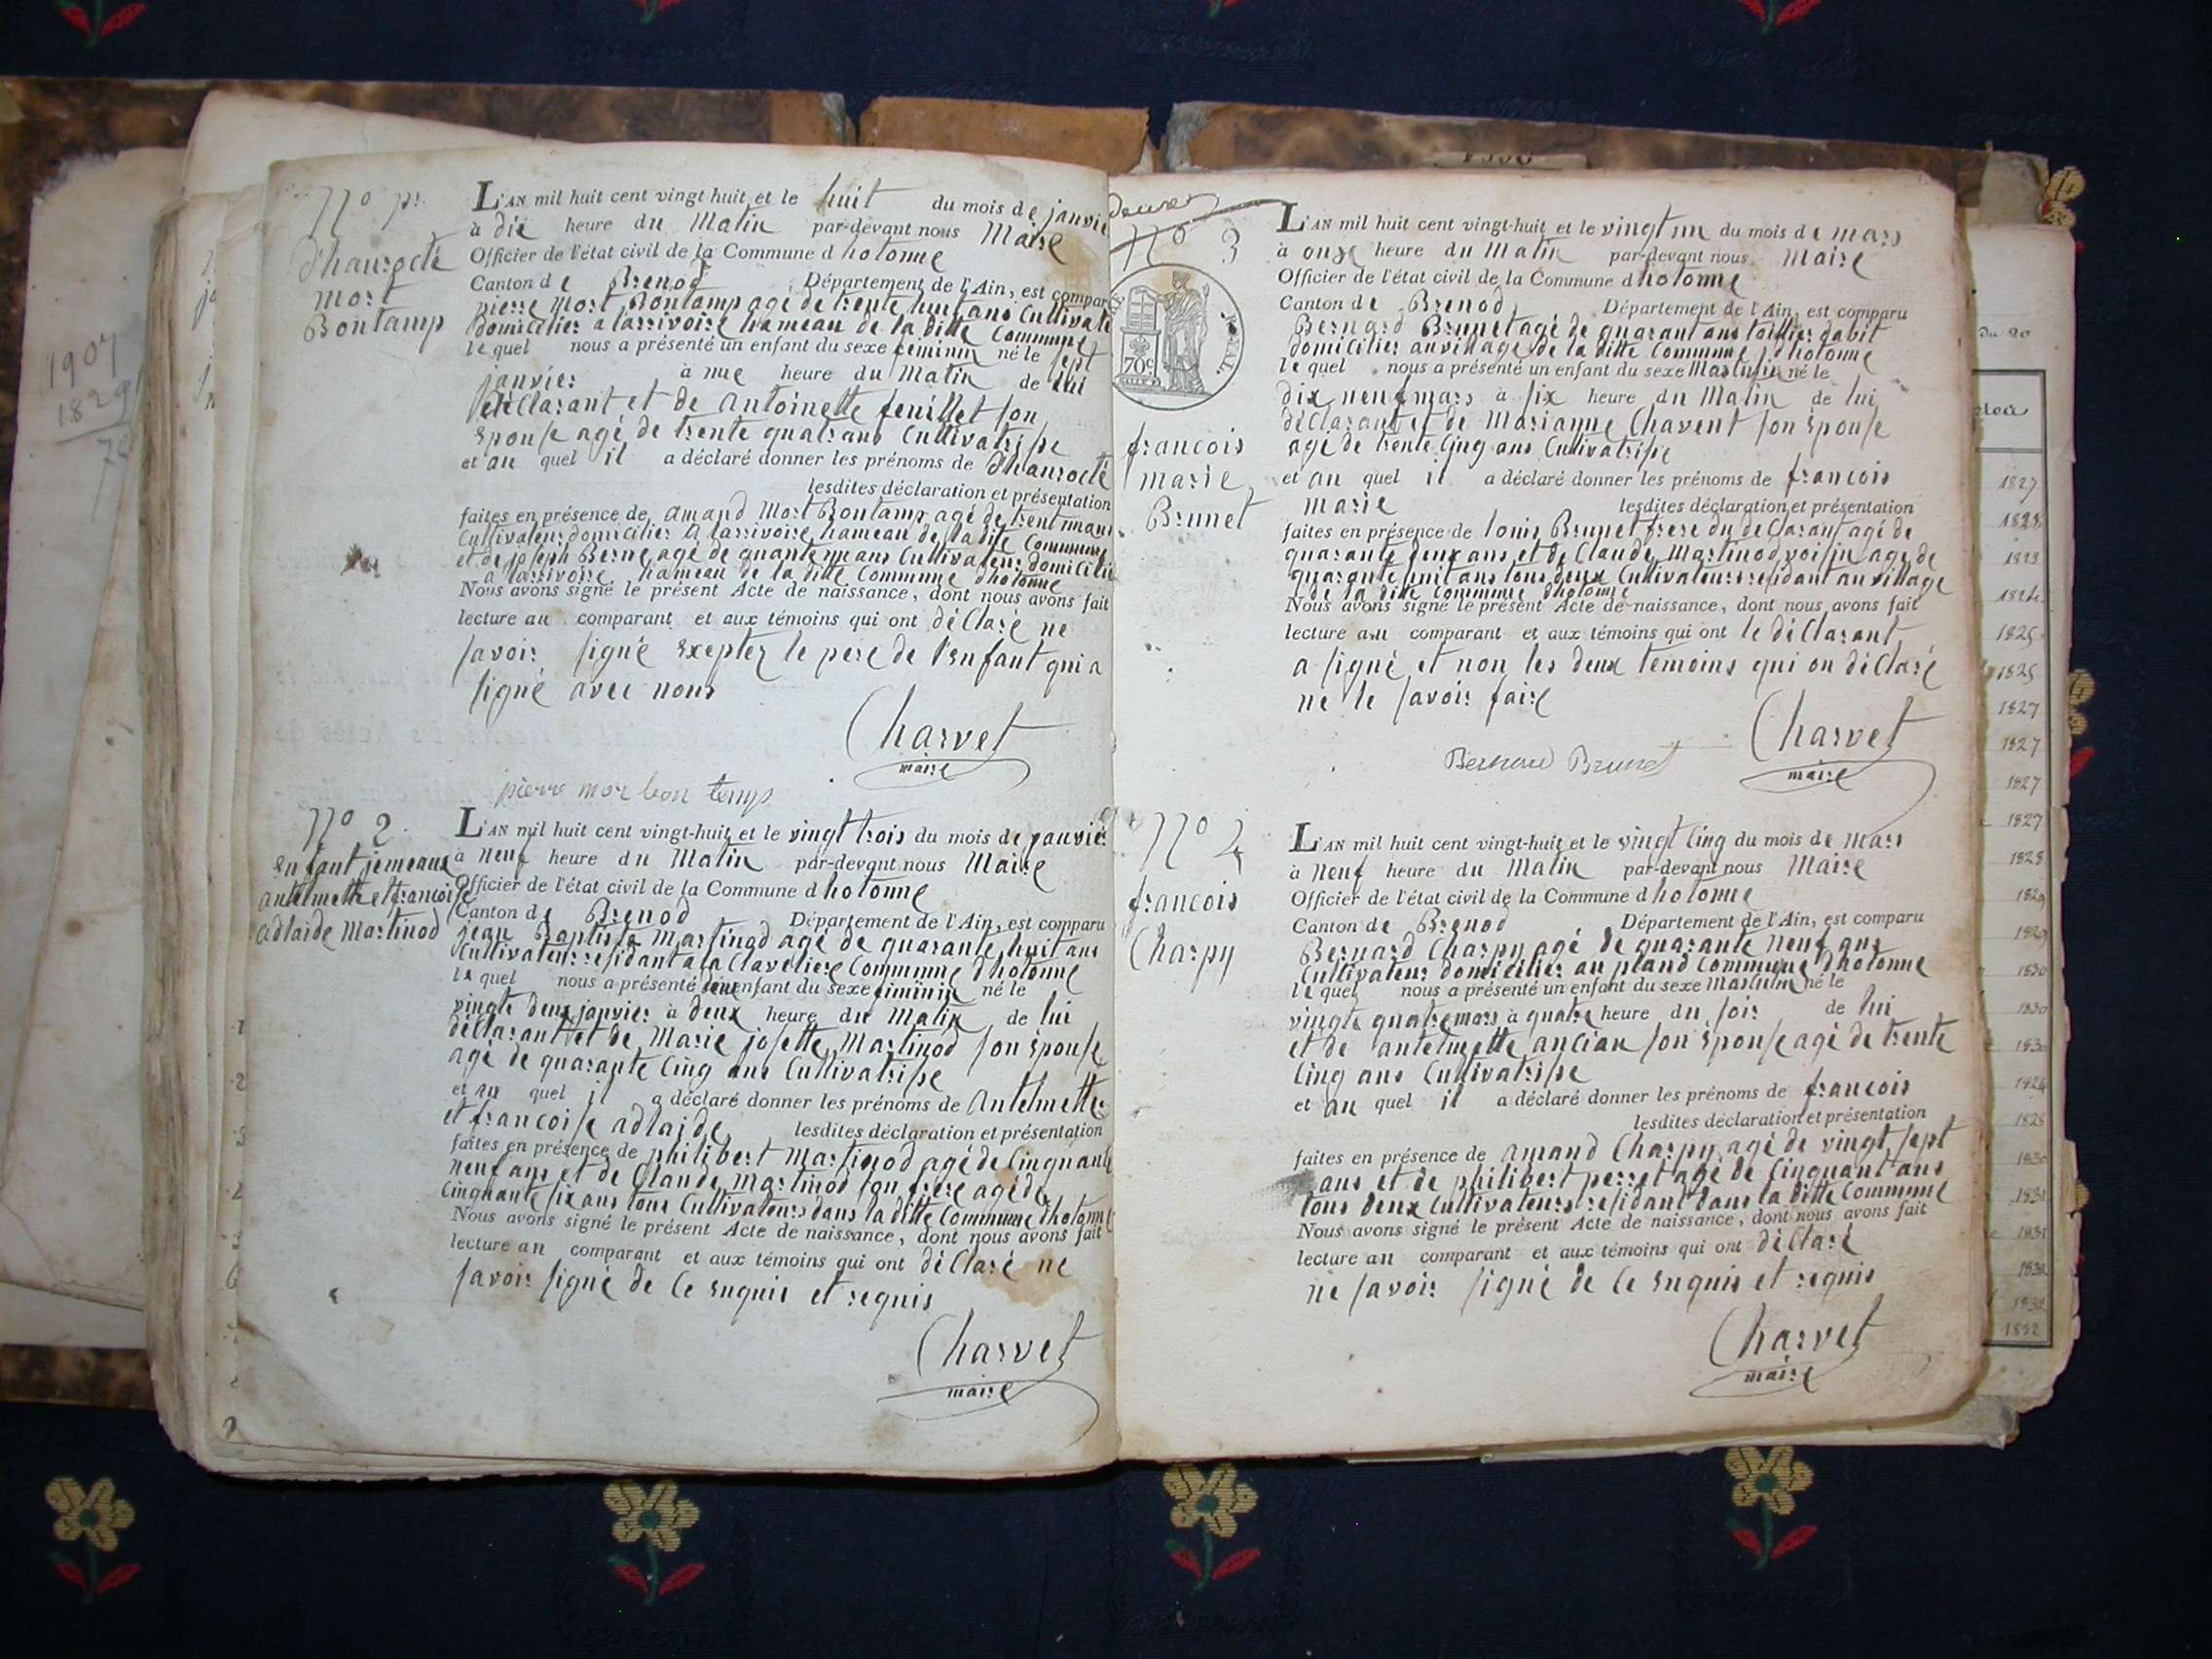 1907
1829
78
N.º p.r
Thaurocté
mort
Bontamp
L'AN mil huit cent vingt-huit et le huit du mois de janvie
à dix heure du Matin par-devant nous Maire
Officier de l'état civil de la Commune d hotonne
Canton de Brenod Département de l'Ain, est compar
pierre Mort Bontamp agé de trente huit ans Cultivate
domicilier a larrivoire hameau de la ditte Commune
le quel nous a présenté un enfant du sexe feminin né le sept
janvier à une heure du Matin de lui
déclarant et de Antoinette feuillet son
Epouse agé de trente quatrans Cultivatrisse
et au quel il a déclaré donner les prénoms de Thaurocté
lesdites déclaration et présentation
faites en présence de amand Mort Bontamp agé de trent un ans
Cultivateur domicilier a larrivoire hameau de la dite Commune
et de joseph Berne agé de quarante un ans Cultivateur domicilié
a larrivoire hameau de la ditte Commune dhotonne
Nous avons signé le présent Acte de naissance, dont nous avons fait
lecture au comparant et aux témoins qui ont déClaré ne
savoir signé Exeptez le pere de l'Enfant qui a
signé avec nous
Charvet
maire
pierre mor bon temp
N.º 2
Enfant jemeaux
antelmette et francoise
adlaide Martinod
L'AN mil huit cent vingt-huit et le vingt trois du mois de janvier
à neuf heure du Matin par-devant nous Maire
Officier de l'état civil de la Commune d hotonne
Canton de Brenod Département de l'Ain, est comparu
jean Baptiste Martinod agé de quarante huit ans
Cultivateur residant a la Claveliere Commune dhotonne
le quel nous a présenté deux enfant du sexe feminin né le
vingte deux janvier à deux heure du Matin de lui
déclarant et de Marie josette Martinod son Epouse
agé de quarante Cinq ans Cultivatrisse
et au quel il a déclaré donner les prénoms de Antelmette
et francoise adlaide lesdites déclaration et présentation
faites en présence de philibert Martinod agé de Cinquante
neuf ans et de Claude Martinod son frere agé de
Cinquante six ans tous Cultivateurs dans la ditte Commune dhotonne
Nous avons signé le présent Acte de naissance, dont nous avons fait
lecture au comparant et aux témoins qui ont déClaré ne
savoir signé de Ce Enquis et requis
Charvet
maire
deux
N.º 3
70c
francois
marie
Brunet
L'AN mil huit cent vingt-huit et le vingt un du mois de mars
à onze heure du Matin par-devant nous Maire
Officier de l'état civil de la Commune d hotonne
Canton de Brenod Département de l'Ain, est comparu
Bernard Brunet agé de quarant ans taillier dabit
domicilier au village de la ditte Commune dhotonne
le quel nous a présenté un enfant du sexe Masculin né le
dix neuf mars à six heure du Matin de lui
déClarant et de Marianne Chavent son Epouse
agé de trente Cinq ans Cultivatrisse
et au quel il a déclaré donner les prénoms de francois
marie lesdites déclaration et présentation
faites en présence de louis Brunet frere du déClarant agé de
quarante deux ans et de Claude Martinod voisin agé de
quarante huit ans tous deux Cultivateurs residant au village
de la ditte Commune dhotonne
Nous avons signé le présent Acte de naissance, dont nous avons fait
lecture au comparant et aux témoins qui ont le déClarant
a signé et non les deux temoins qui on déClaré
ne le savoir faire
Charvet
maire
Bernard Brunet
N.º 4
francois
Charpy
L'AN mil huit cent vingt-huit et le vingt Cinq du mois de Mars
à neuf heure du Matin par-devant nous Maire
Officier de l'état civil de la Commune d hotonne
Canton de Brenod Département de l'Ain, est comparu
Bernard Charpy agé de quarante neuf ans
Cultivateur domicilier au pland Commune dhotonne
le quel nous a présenté un enfant du sexe Masculin né le
vingte quatre mars à quatre heure du soir de lui
et de antelmette ancian son Epouse agé de trente
Cinq ans Cultivatrisse
et au quel il a déclaré donner les prénoms de francois
lesdites déclaration et présentation
faites en présence de amand Charpy agé de vingt sept
ans et de philibert perret agé de Cinquant ans
tous deux Cultivateurs residant dans la ditte Commune
Nous avons signé le présent Acte de naissance, dont nous avons fait
lecture au comparant et aux témoins qui ont déClaré
ne savoir signé de Ce Enquis et requis
Charvet
maire
du 20
1827
1828
1823
1824
1825
1825
1827
1827
1827
1827
1828
1829
1829
1830
1830
1830
1824
1828
1830
1831
1831
1832
1832
1832